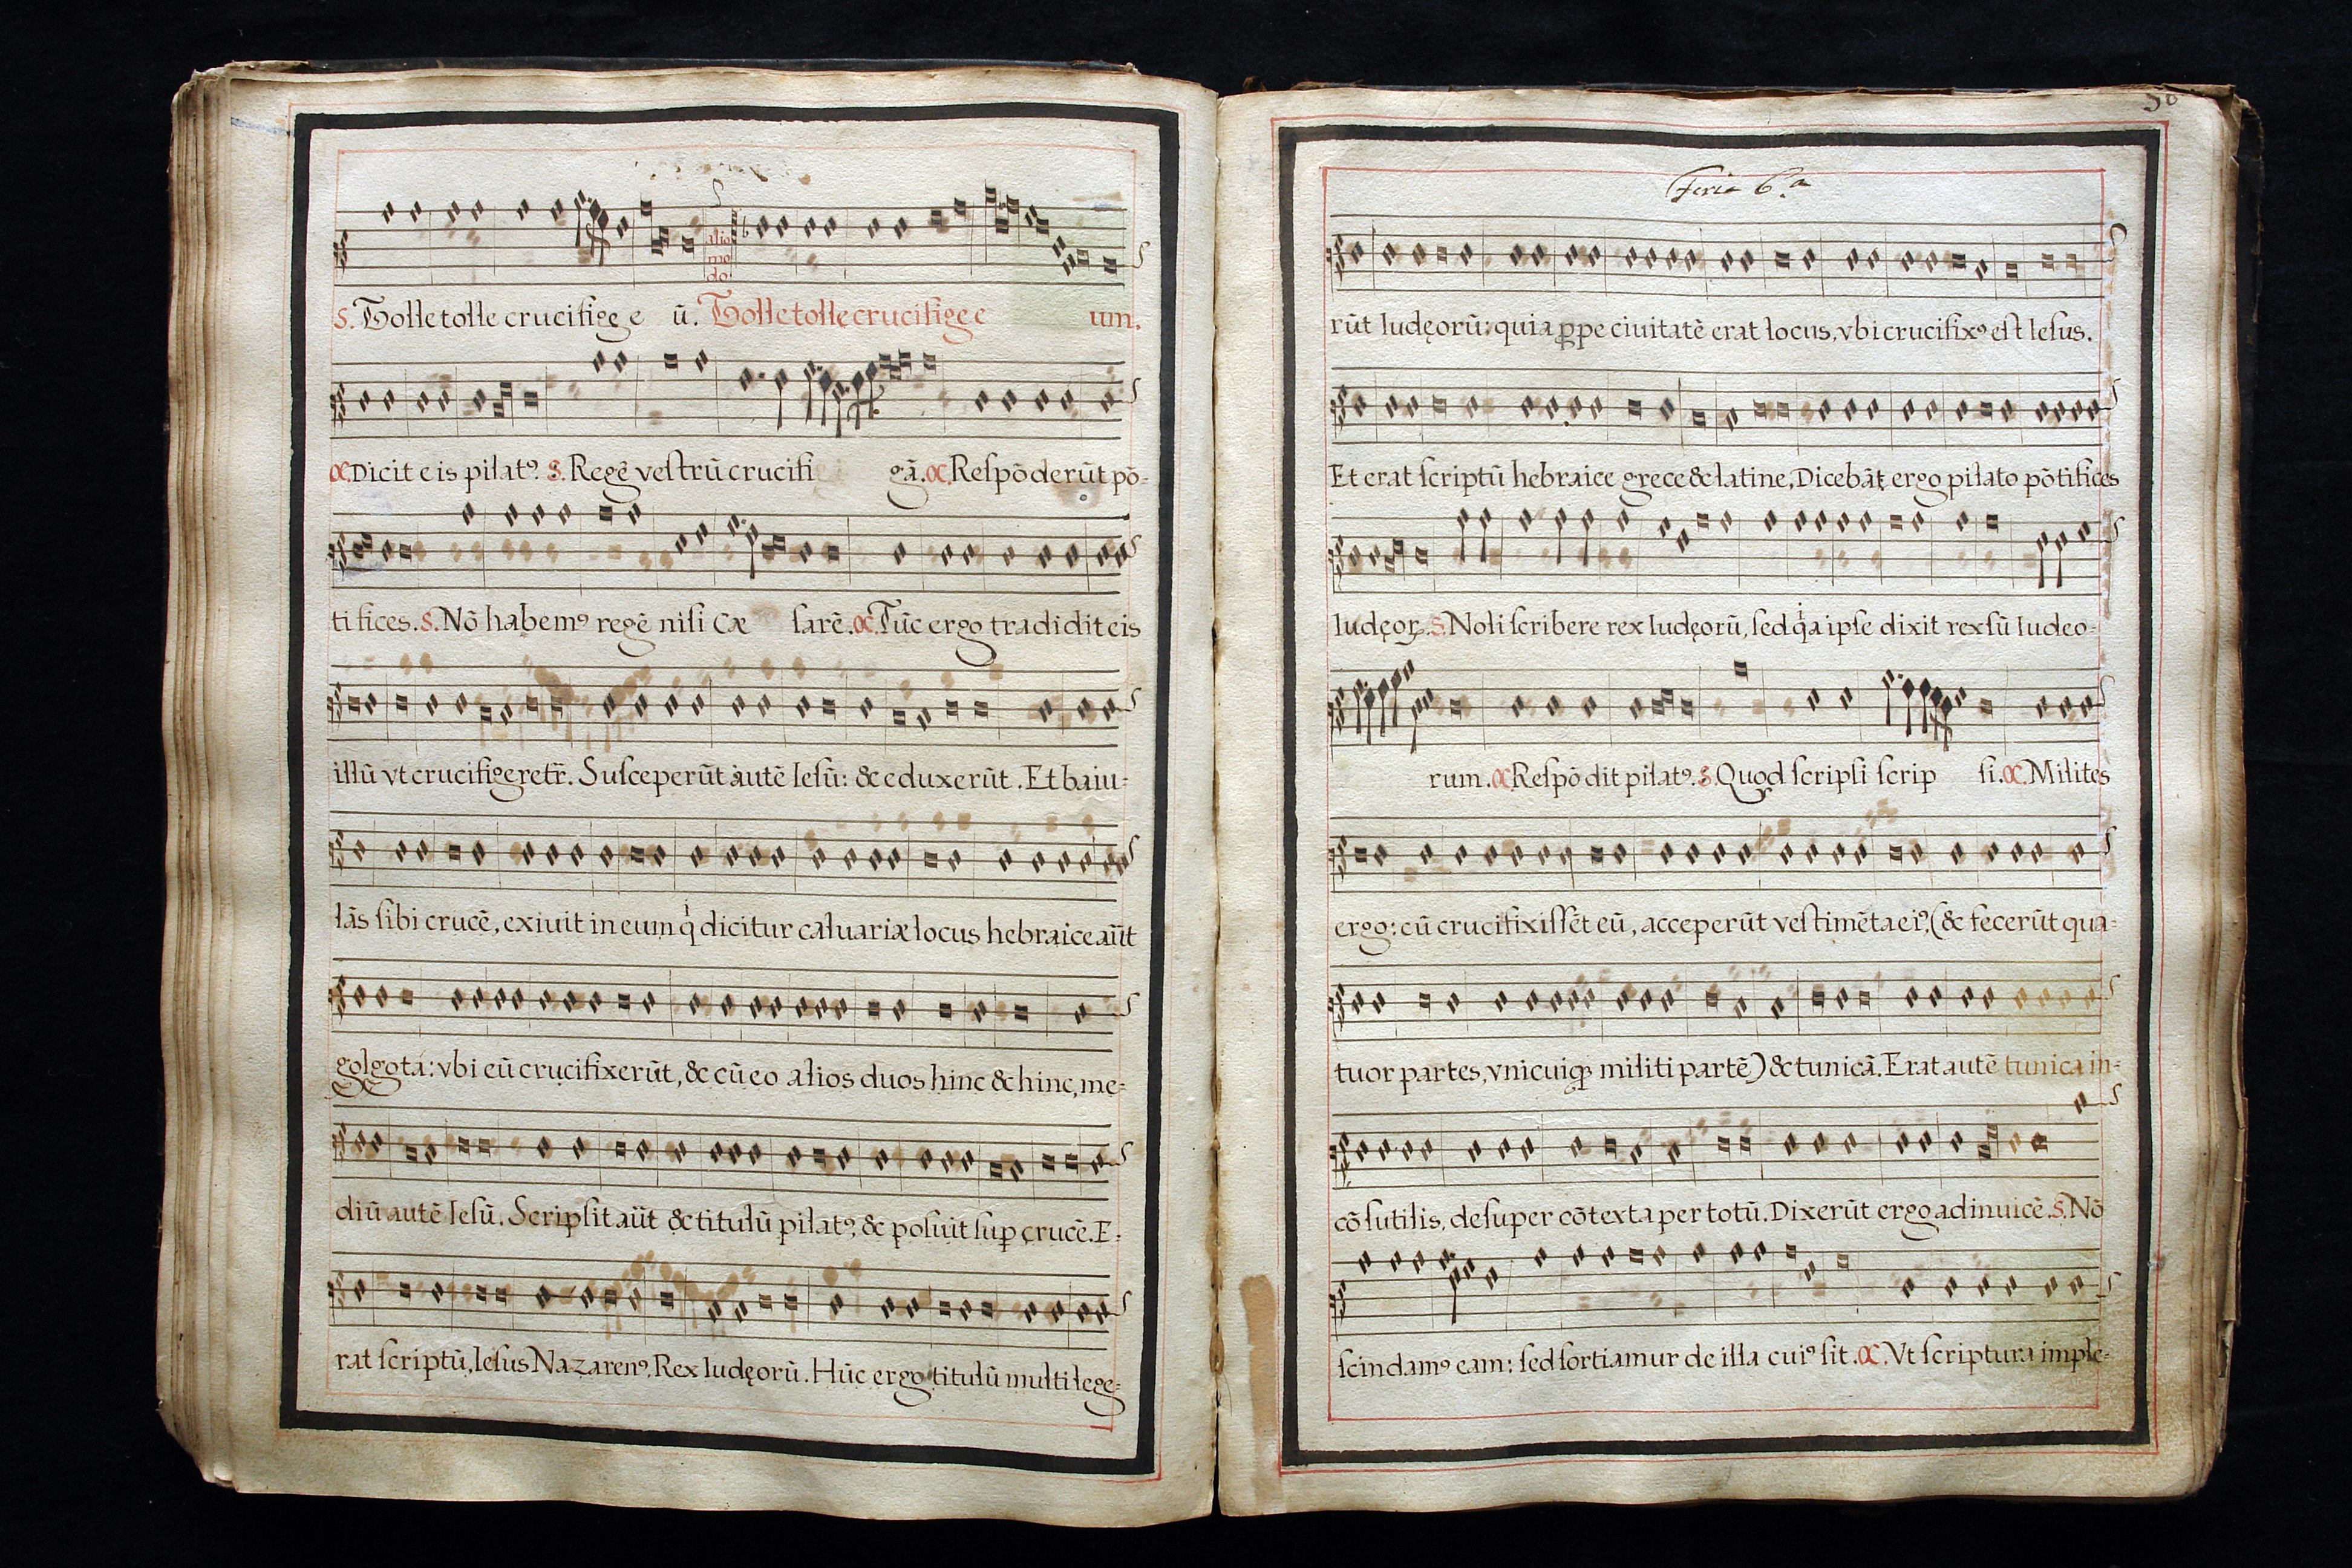 alio
mo
do.
S. Tolle tolle crucifige e ū. Tolle tolle crucifige e um.
C. Dicit eis pilatꝰ. S. Regē veſtrū crucifi gā. C. Reſpōderūt pō-
tifices. S. Nō habemꝰ regē niſi Cæ ſarē. C. Tūc ergo tradidit eis
illū vt crucifigeret̄r. Suſceperūt autē Ieſū: & eduxerūt. Et baiu-
lās ſibi crucē, exiuit in eum qͥ dicitur caluariæ locus hebraice aūt
golgota: vbi eū crucifixerūt, & cū eo alios duos hinc & hinc, me-
diū autē Ieſū. Scripſit aūt & titulū pilatꝰ, & poſuit ſuꝑ crucē. E-
rat ſcriptū, Ieſus Nazarenꝰ, Rex Iudęorū. Hūc ergo titulū multi lege-
Feria 6.ª
rūt Iudęorū: quia ꝓpe ciuitatē erat locus, vbi crucifixꝰ eſt Ieſus.
Et erat ſcriptū hebraice grece & latine, Dicebāt ergo pilato pōtifices
Iudęoꝝ. S. Noli ſcribere rex Iudęorū, ſed qͥa ipſe dixit rex ſū Iudeo-
rum. C. Reſpōdit pilatꝰ. S. Quod ſcripſi ſcrip ſi. C. Milites
ergo: cū crucifixiſſēt eū, acceperūt veſtimēta eiꝰ, (& fecerūt qua-
tuor partes, vnicuiqꝫ militi partē) & tunicā. Erat autē tunica in-
cōſutilis, deſuper cōtexta per totū. Dixerūt ergo adinuicē. S. Nō
ſcindamꝰ eam: ſed ſortiamur de illa cuiꝰ ſit. C. Vt ſcriptura imple-